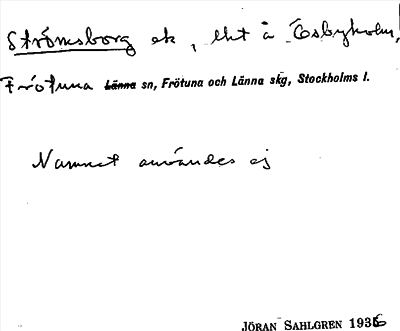 Strömsborg ek, lht åÖsbyholm,
Frötuna Länna sn, Frötuna och Länna skg, Stockholms l.
Namnet användes ej
JÖRAN SAHLGREN 1936